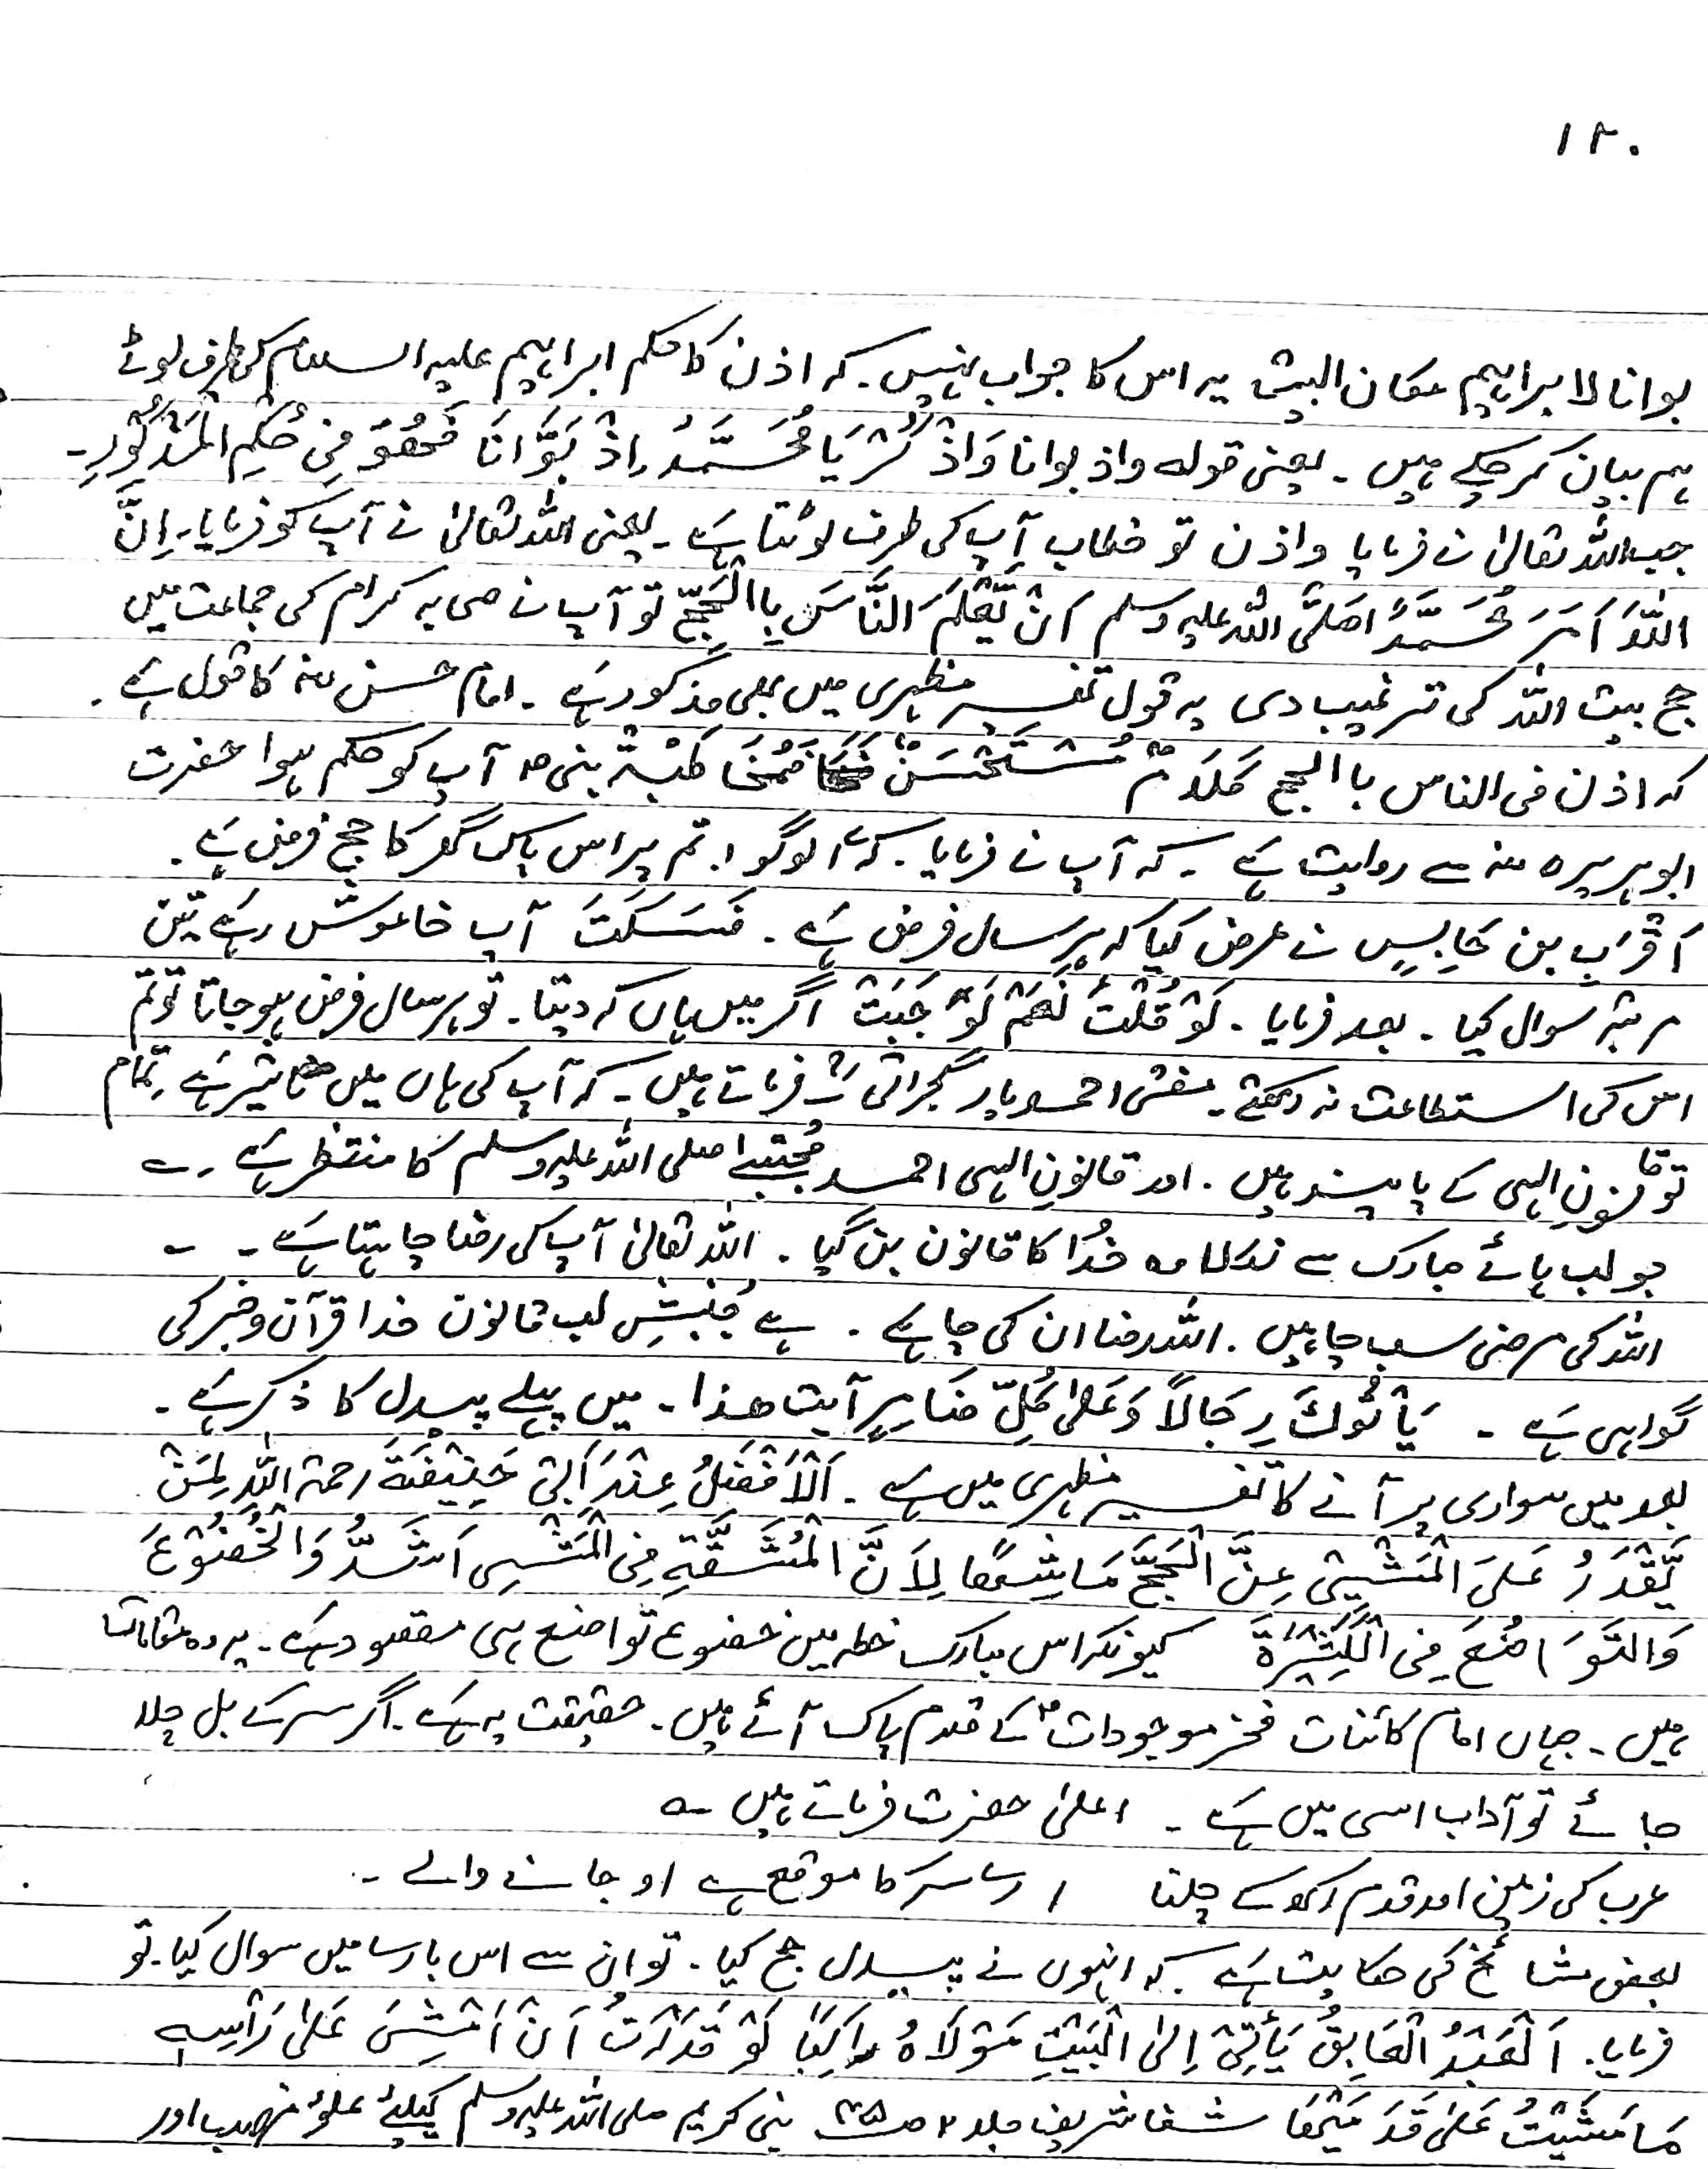 ۱۲۰
بوانا لا براہیم مکان البیت یہ اس کا جواب نہیں۔ کہ اذن کا حکم ابراہیم علیہ السلام کی طرف لوٹے
ہم بیان کر چکے ہیں ۔ یعنی قولہ واذ بوانا وَاذْ کُرْ یَا مُحَمَّدُ اِذْ بَوَّانَا فَھُوَ فِیْ حُکِمِ الْمَذْکُوْرِ۔
جب اللہ تعالیٰ نے فرمایا واذن تو خطاب آپ کی طرف لوٹتا ہے ۔ یعنی اللہ تعالیٰ نے آپ کو فرمایا۔ اِنَّ
اللّٰہَ اَمَرَ مُحَمَّدًا صَلَّی اللہ علیہ وسلم اَنْ یُّعْلِمَ النَّاسَ بِا الْحَجِّ تو آپ نے صحابہ کرام کی جماعت میں
حج بیت اللہ کی ترغیب دی یہ قول تفسیر مظہری میں بھی مذکور ہے ۔ امام حسن رضہ کا قول ہے ۔
کہ اذن فی الناس با الحج کَلَامٌ مُسْتَحْسَنٌ آپ کو حکم ہوا حضرت
ابو ہریرہ رضہ سے روایت ہے ۔ کہ آپ نے فرمایا ۔ کہ اے لوگو! تم پر اس پاک گھر کا حج فرض ہے ۔
اَقْرَب بن حَابِسٍ نے عرض کیا کہ ہر سال فرض ہے ۔ فَسَکَتَ آپ خاموش رہے تین
مرتبہ سوال کیا ۔ بعد فرمایا ۔ لَوْ قُلْتُ نَعَمْ لَوَ جَبَتْ اگر میں ہاں کہ دیتا ۔ تو ہر سال فرض ہو جاتا تو تم
اس کی استطاعت نہ رکھتے ۔ مفتی احمد یار گجراتی رح فرماتے ہیں ۔ کہ آپ کی ہاں میں تاثیر ہے ۔ تمام
تو قانونِ الہی کے پابند ہیں ۔ اور قانونِ الہی احمد مُجتبےٰ صلی اللہ علیہ وسلم کا منتظر ہے ۔
جو لب ہائے مبارک سے نکلا وہ خُدا کا قانون بن گیا ۔ اللہ تعالیٰ آپ کی رضا چاہتا ہے ۔
اللہ کی مرضی سب چاہیں ۔ اللہ رضا ان کی چاہے ۔ ہے جُنبشِ لب قانون خدا قرآن و خبر کی
گواہی ہے ۔ یَأتُوکَ رِجَالاً وَعَلیٰ کُلِّ ضَامِرٍ آیت ھذا ۔ میں پہلے پیدل کا ذکر ہے ۔
بعد میں سواری پر آنے کا تفسیر مظہری میں ہے ۔ اَلْاَفْضَلُ عِنْدَ اَبِیْ حَنِیْفَۃَ رحمۃ اللہ لِمَنْ
یَّقْدَرُ عَلَی الْمَشْیِیْ عِنَّ الْحَجَّ مَاشِیًا لِاَنَّ الْمُشَقَّۃِ فِی الْمَشْیِ اَشَدُّ وَالْخُضُوْعَ
وَالتَّوَاضُعَ فِی الْکَثِیْرَۃَ کیونکہ اس مبارک خطہ میں خضوع تواضع ہی مقصود ہے ۔ یہ وہ مقامات
ہیں ۔ جہاں امام کائنات فخر موجودات ؐ کے قدم پاک آئے ہیں ۔ حقیقت یہ ہے ۔ اگر سر کے بل چلا
جائے تو آداب اسی میں ہے ۔ اعلیٰ حضرت فرماتے ہیں ۔
عرب کی زمین اور قدم رکھ کے چلنا / ارے سر کا موقع ہے او جانے والے ۔
بعض مشائخ کی حکایت ہے ۔ کہ انہوں نے پیدل حج کیا ۔ تو ان سے اس بارے میں سوال کیا ۔ تو
فرمایا ۔ اَلْعَبْدُ الْعَابِقُ یَأتِیْ اِلیٰ الْبَیْتِ مَوْلَاہُ رَاکِبًا لَوْ قَدَرْتُ اَنْ اَمْشِیَ عَلیٰ رَأسِہٖ
مَا مَشَیْتُ عَلیٰ قَدَ مَیْھَا شفا شریف جلد ۲ صـ ۳۵ نبی کریم صلی اللہ علیہ وسلم کیلئے علوِّ منصب اور